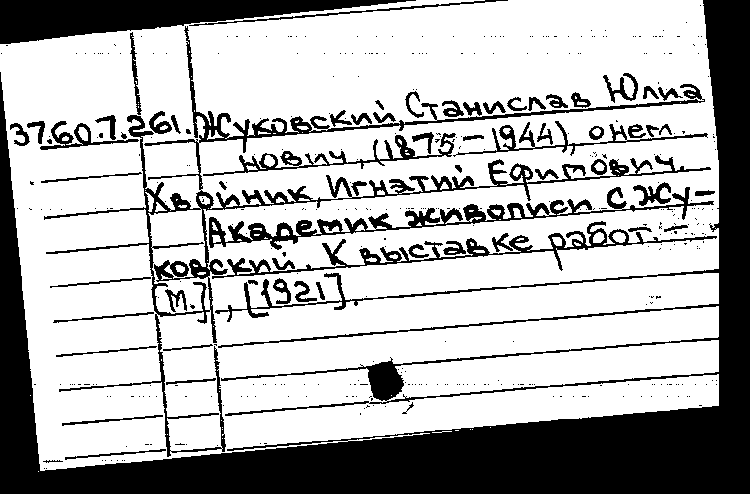 37.607.261. Жуковский, Станислав Юлиа
нович, (1875-1944), о нем.
Хвойник, Игнатий Ефимович.
Академик живописи С. Жу-
ковский. К выставке работ. -
[М.], [1921].